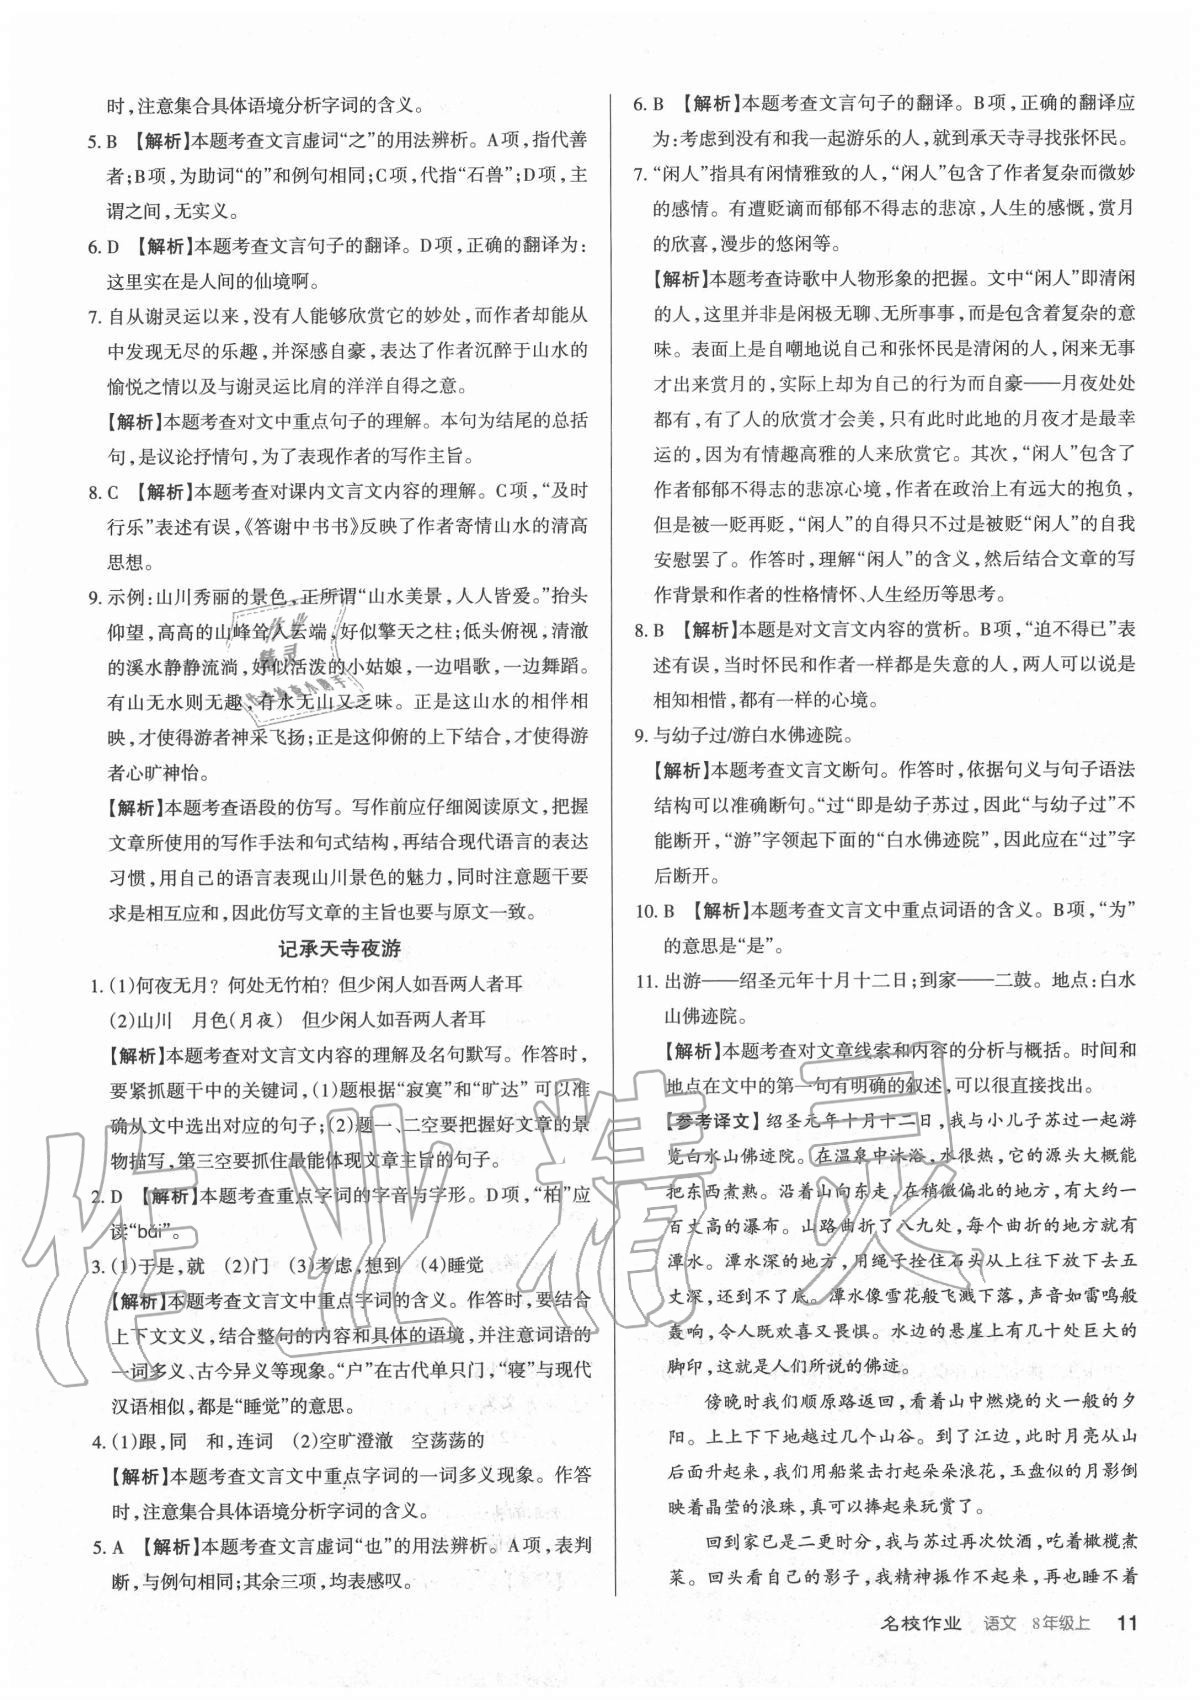 时，注意集合具体语境分析字词的含义。
5. B 【解析】本题考查文言虚词“之”的用法辨析。A项，指代善
者；B项，为助词“的”和例句相同；C项，代指“石兽”；D项，主
谓之间，无实义。
6. D 【解析】本题考查文言句子的翻译。D项，正确的翻译为：
这里实在是人间的仙境啊。
7. 自从谢灵运以来，没有人能够欣赏它的妙处，而作者却能从
中发现无尽的乐趣，并深感自豪，表达了作者沉醉于山水的
愉悦之情以及与谢灵运比肩的洋洋自得之意。
【解析】本题考查对文中重点句子的理解。本句为结尾的总括
句，是议论抒情句，为了表现作者的写作主旨。
8. C 【解析】本题考查对课内文言文内容的理解。C项，“及时
行乐”表述有误，《答谢中书书》反映了作者寄情山水的清高
思想。
9. 示例：山川秀丽的景色，正所谓“山水美景，人人皆爱。”抬头
仰望，高高的山峰耸入云端，好似擎天之柱；低头俯视，清澈
的溪水静静流淌，好似活泼的小姑娘，一边唱歌，一边舞蹈。
有山无水则无趣，有水无山又乏味。正是这山水的相依相
映，才使得游者神采飞扬；正是这仰俯的上下结合，才使得游
者心旷神怡。
【解析】本题考查语段的仿写。写作前应仔细阅读原文，把握
文章所使用的写作手法和句式结构，再结合现代语言的表达
习惯，用自己的语言表现山川景色的魅力，同时注意题干要
求是相互应和，因此仿写文章的主旨也要与原文一致。
记承天寺夜游
1. (1)何夜无月？何处无竹柏？但少闲人如吾两人者耳
(2)山川 月色(月夜) 但少闲人如吾两人者耳
【解析】本题考查对文言文内容的理解及名句默写。作答时，
要紧抓题干中的关键词，(1)题根据“寂寞”和“旷达”可以准
确从文中选出对应的句子；(2)题一、二空要把握好文章的景
物描写，第三空要抓住最能体现文章主旨的句子。
2. D 【解析】本题考查重点字词的字音与字形。D项，“柏”应
读“bǎi”。
3. (1)于是，就 (2)门 (3)考虑，想到 (4)睡觉
【解析】本题考查文言文中重点字词的含义。作答时，要结合
上下文文义，结合整句的内容和具体的语境，并注意词语的
一词多义、古今异义等现象。“户”在古代单只门，“寝”与现代
汉语相似，都是“睡觉”的意思。
4. (1)跟，同 和，连词 (2)空旷澄澈 空荡荡的
【解析】本题考查文言文中重点字词的一词多义现象。作答
时，注意集合具体语境分析字词的含义。
5. A 【解析】本题考查文言虚词“也”的用法辨析。A项，表判
断，与例句相同；其余三项，均表感叹。
6. B 【解析】本题考查文言句子的翻译。B项，正确的翻译应
为：考虑到没有和我一起游乐的人，就到承天寺寻找张怀民。
7. “闲人”指具有闲情雅致的人，“闲人”包含了作者复杂而微妙
的感情。有遭贬谪而郁郁不得志的悲凉，人生的感慨，赏月
的欣喜，漫步的悠闲等。
【解析】本题考查诗歌中人物形象的把握。文中“闲人”即清闲
的人，这里并非是闲极无聊、无所事事，而是包含着复杂的意
味。表面上是自嘲地说自己和张怀民是清闲的人，闲来无事
才出来赏月的，实际上却为自己的行为而自豪——月夜处处
都有，有了人的欣赏才会美，只有此时此地的月夜才是最幸
运的，因为有情趣高雅的人来欣赏它。其次，“闲人”包含了
作者郁郁不得志的悲凉心境，作者在政治上有远大的抱负，
但是被一贬再贬，“闲人”的自得只不过是被贬“闲人”的自我
安慰罢了。作答时，理解“闲人”的含义，然后结合文章的写
作背景和作者的性格情怀、人生经历等思考。
8. B 【解析】本题是对文言文内容的赏析。B项，“迫不得已”表
述有误，当时怀民和作者一样都是失意的人，两人可以说是
相知相惜，都有一样的心境。
9. 与幼子过/游白水佛迹院。
【解析】本题考查文言文断句。作答时，依据句义与句子语法
结构可以准确断句。“过“即是幼子苏过，因此“与幼子过”不
能断开，“游”字领起下面的“白水佛迹院”，因此应在“过”字
后断开。
10. B 【解析】本题考查文言文中重点词语的含义。B项，“为”
的意思是“是”。
11. 出游——绍圣元年十月十二日；到家——二鼓。地点：白水
山佛迹院。
【解析】本题考查对文章线索和内容的分析与概括。时间和
地点在文中的第一句有明确的叙述，可以很直接找出。
【参考译文】绍圣元年十月十二日，我与小儿子苏过一起游
览白水山佛迹院。在温泉中沐浴，水很热，它的源头大概能
把东西煮熟。沿着山向东走，在稍微偏北的地方，有大约一
百丈高的瀑布。山路曲折了八九处，每个曲折的地方就有
潭水。潭水深的地方，用绳子拴住石头从上往下放下去五
丈深，还到不了底。潭水像雪花般飞溅下落，声音如雷鸣般
轰响，令人既欢喜又畏惧。水边的悬崖上有几十处巨大的
脚印，这就是人们所说的佛迹。
傍晚时我们顺原路返回，看着山中燃烧的火一般的夕
阳。上上下下地越过几个山谷。到了江边，此时月亮从山
后面升起来，我们用船桨击打起朵朵浪花，玉盘似的月影倒
映着晶莹的浪珠，真可以捧起来玩赏了。
回到家已是二更时分，我与苏过再次饮酒，吃着橄榄煮
菜。回头看自己的影子，我精神振作不起来，再也睡不着
名校作业 语文 8年级上 11
作业精灵
作业
精灵